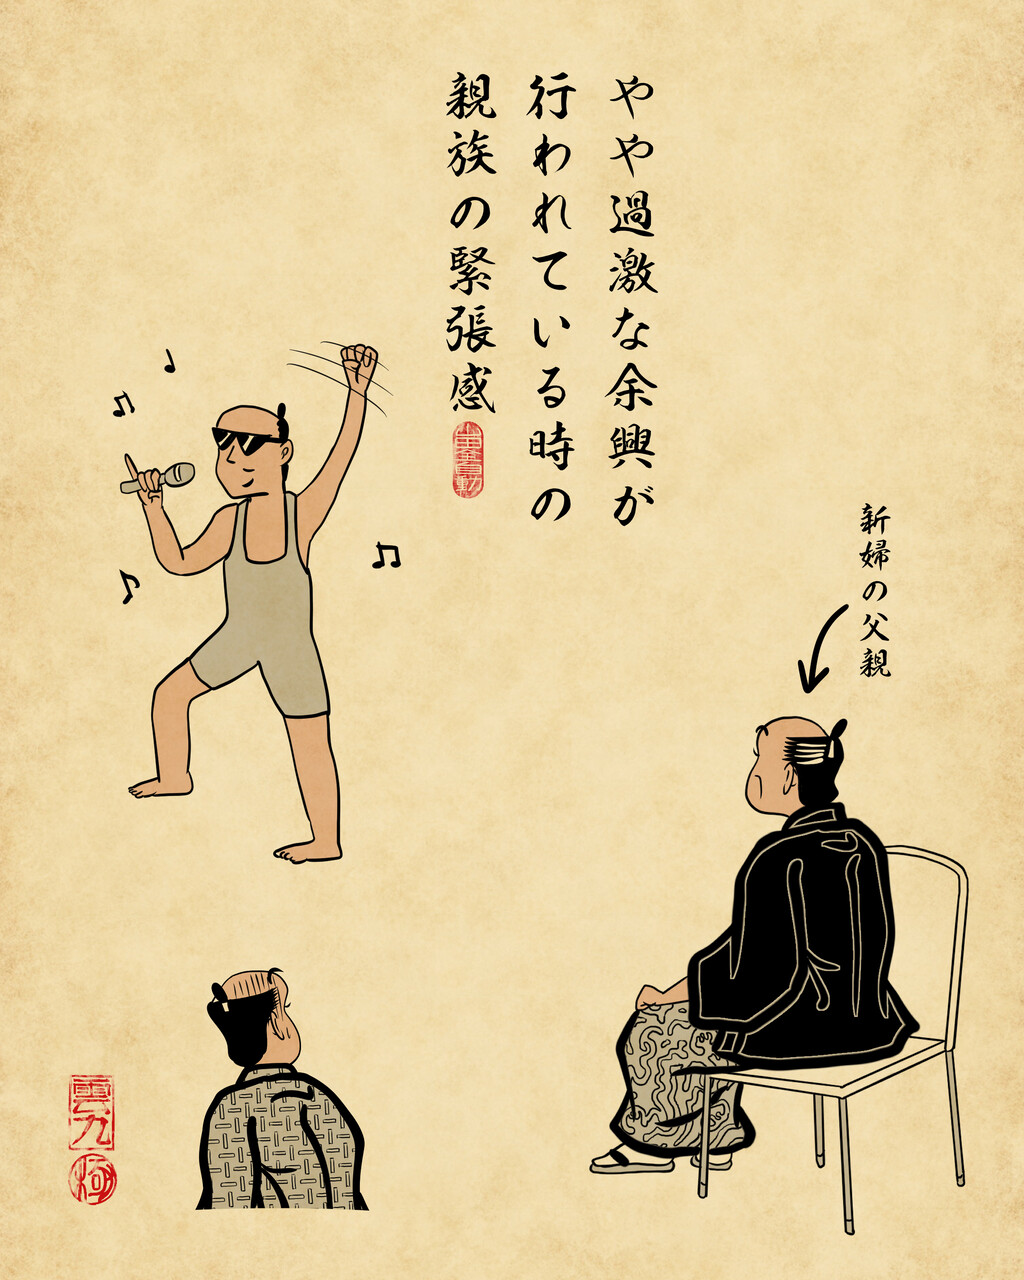 やや過激な余興が
行われている時の
親族の緊張感
新婦の父親